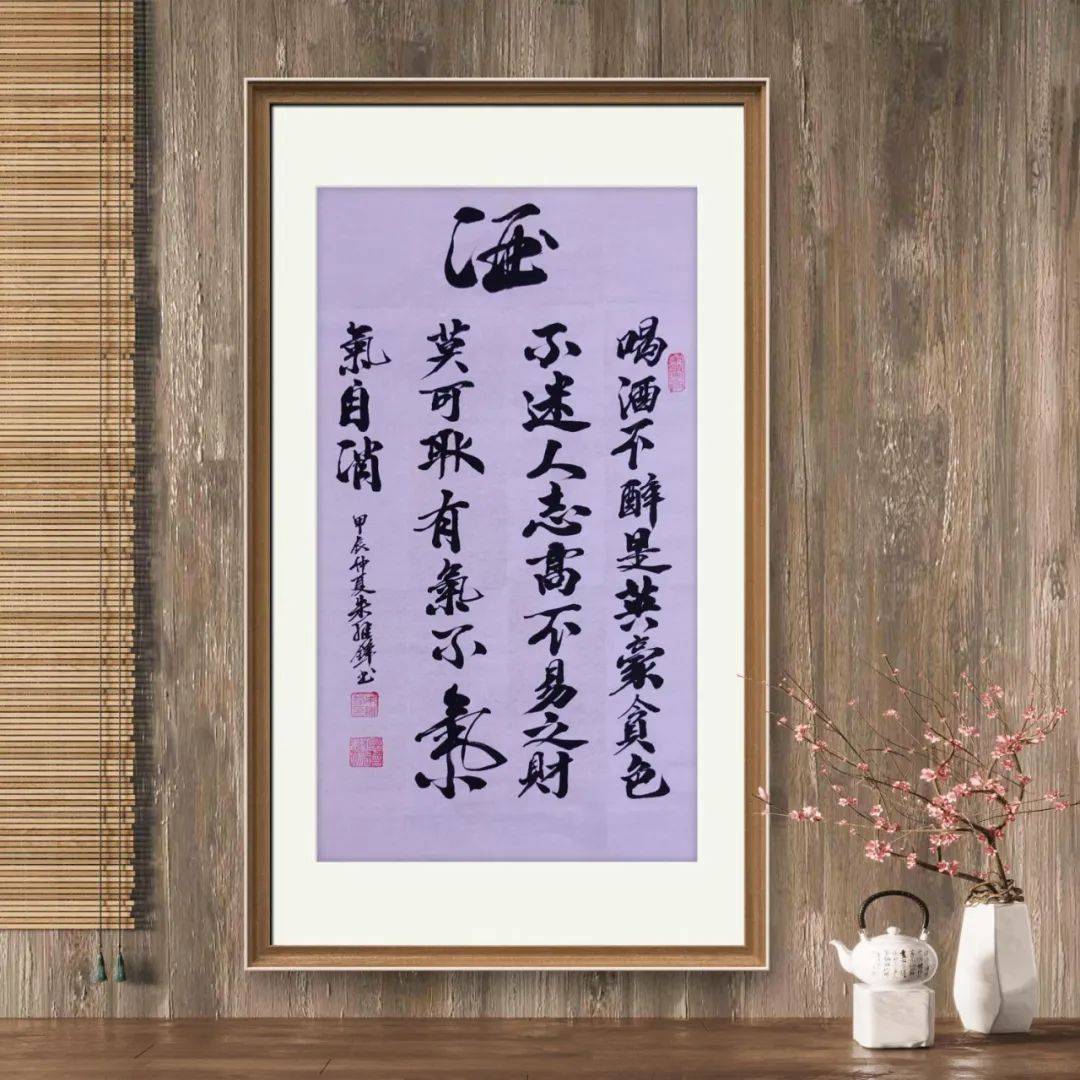 酒
喝酒不醉是英豪貪色
不迷人志高不易之財
莫可取有氣不氣
氣自消
甲辰仲夏朱書